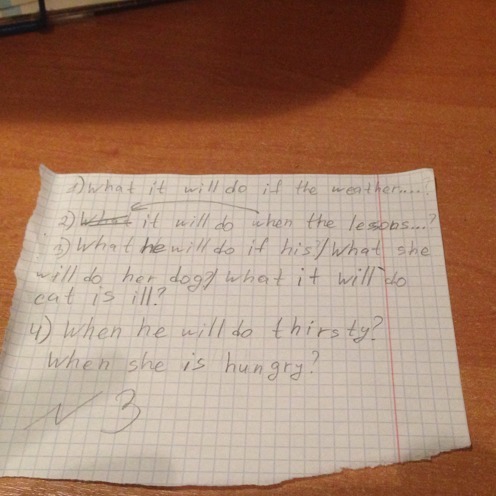 1) What it will do if the weather....?
2) What it will do when the lessons...?
3) What he will do if his?/What she
will do her dog?/What it will do
cat is ill?
4) When he will do thirsty?
When she is hungry?
N 3